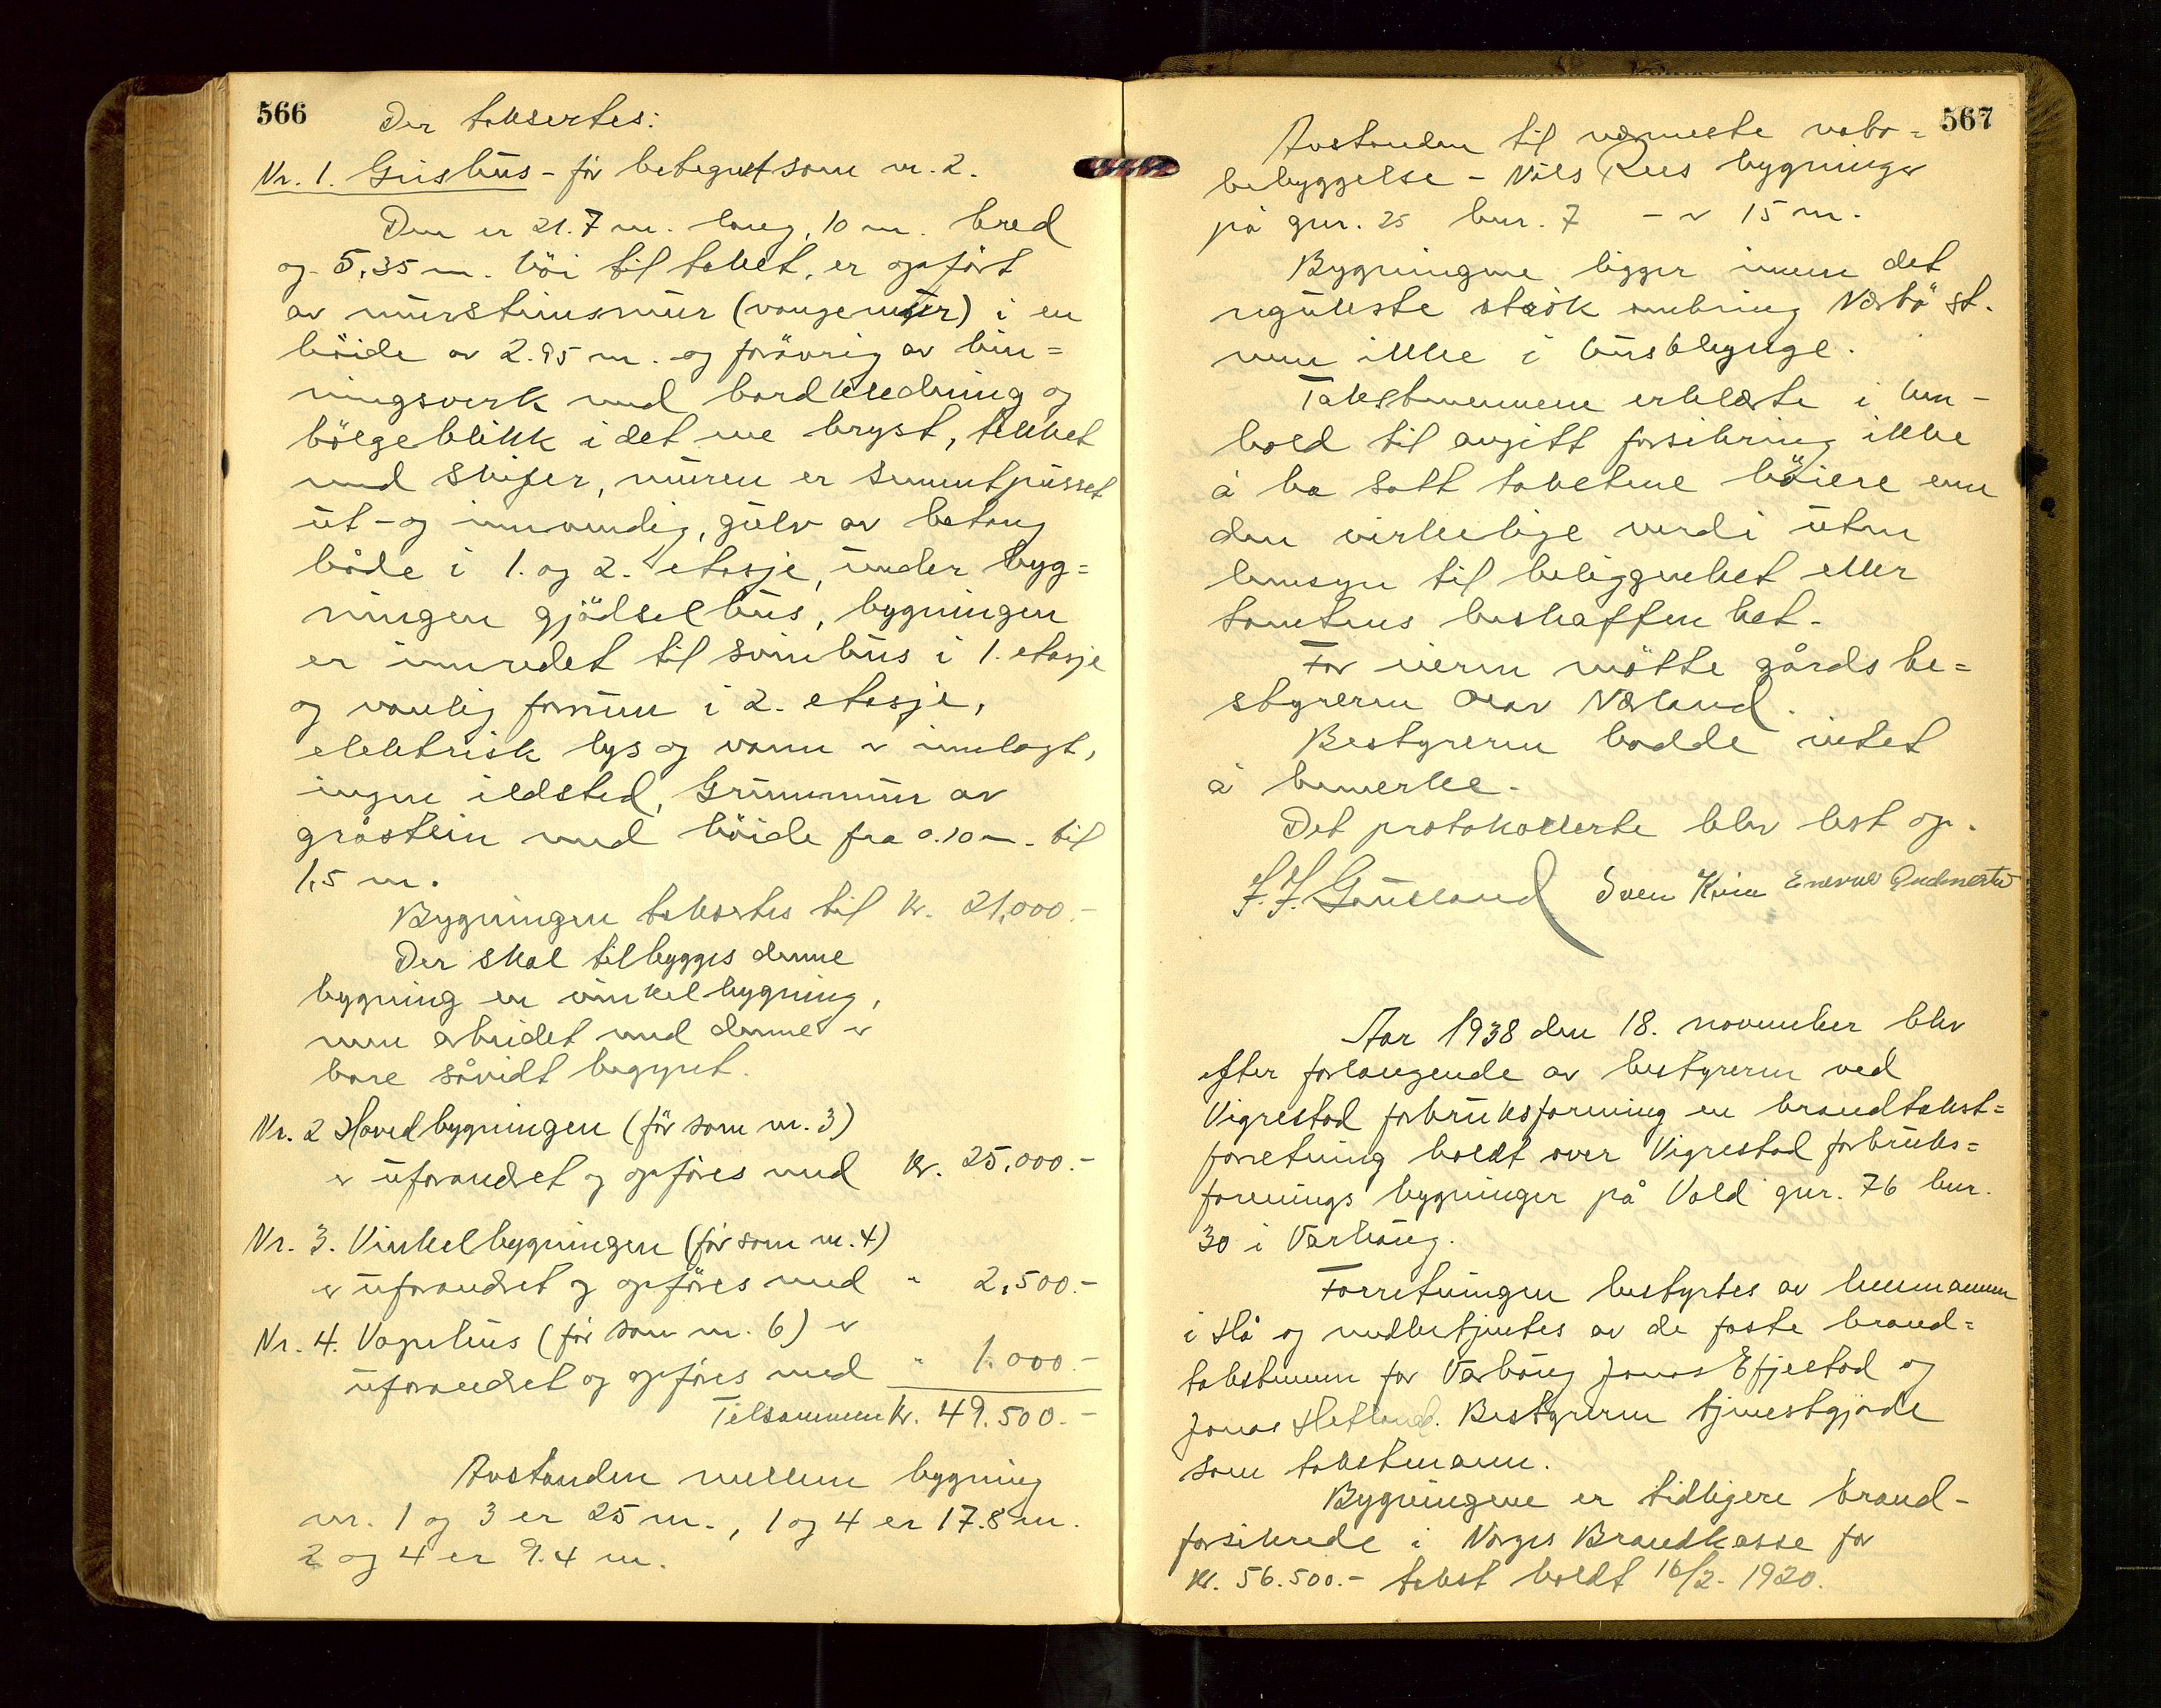 566
Der taksertes:
Nr. 1. Grishus - før betegnet som nr. 2.
Den er 21.7 m. lang, 10 m. bred
og 5,35 m. høi til taket, er opført
av murstensmur (vangemur) i en
høide av 2.95 m. og forøvrig av bin=
ningsverk med bordklædning og
bølgeblikk i det ene bryst, tekket
med skifer, muren er sementpusset
ut- og innvendig, gulv av betong
både i 1. og 2. etasje, under byg=
ningen gjødselhus, bygningen
er innredet til svinhus i 1. etasje
og vanlig forrum i 2. etasje,
elektrisk lys og vann er innlagt,
ingen ildsted, Grunnmur av
gråstein med høide fra 0.10 m. til
1,5 m.
Bygningen takseres til kr. 21,000.-
Der skal tilbygges denne
bygning en vinkelbygning,
men arbeidet med denne er
bare såvidt begynt.
Nr. 2 Hovedbygningen (før som nr. 3)
er uforandret og opføres med kr. 25,000.-
Nr. 3. Vinkelbygningen (før som nr. 4)
er uforandret og opføres med " 2,500.-
Nr. 4. Vognhus (før som nr. 6) er
uforandret og opføres med " 1.000.-
Tilsammen kr. 49.500.-
Avstanden mellem bygning
nr. 1 og 3 er 25 m., 1 og 4 er 17.8 m.
2 og 4 er 9.4 m.
567
Avstanden til nærmeste nabo=
bebyggelse - Nils Rees bygninger
på gnr. 25 bnr. 7 - er 15 m.
Bygningene ligger innen det
regulerte strøk omkring Nærbø st.
men ikke i husklynge.
Takstmennene erklærte i hen-
hold til avgitt forsikring ikke
å ha satt takstene høiere enn
den virkelige verdi uten
hensyn til beliggenhet eller
tomtens beskaffenhet.
For eieren møtte gårdsbe=
styreren Olav Næland.
Bestyreren hadde intet
å bemerke.
Det protokollerte blev lest op.
J. J. Gausland Sven Kvia
Aar 1938 den 18. november blev
efter forlangende av bestyreren ved
Vigrestad forbruksforening en brandtakst=
forretning holdt over Vigrestad forbruks=
forenings bygninger på Vold gnr. 76 bnr.
30 i Varhaug.
Forretningen bestyrtes av lensmannen
i Hå og medbetjentes av de faste brand=
takstmenn for Varhaug Jonas Efjestad og
Jonas Hetland. Bestyreren tjenestgjorde
som takstmann.
Bygningene er tidligere brand-
forsikrede i Norges Brandkasse for
kr. 56.500.- takst holdt 16/2. 1920.